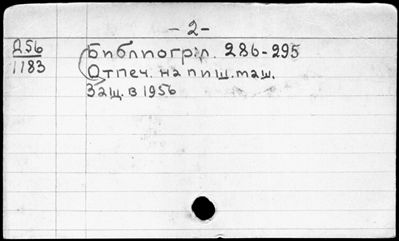 - 2 -
Д56
1183
Библиогр. л. 286-295
Отпеч. на пиш. маш.
Защ. в 1956